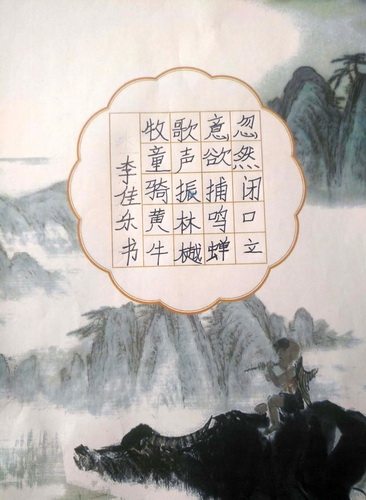 牧童骑黄牛
歌声振林樾
意欲捕鸣蝉
忽然闭口立
李佳乐书